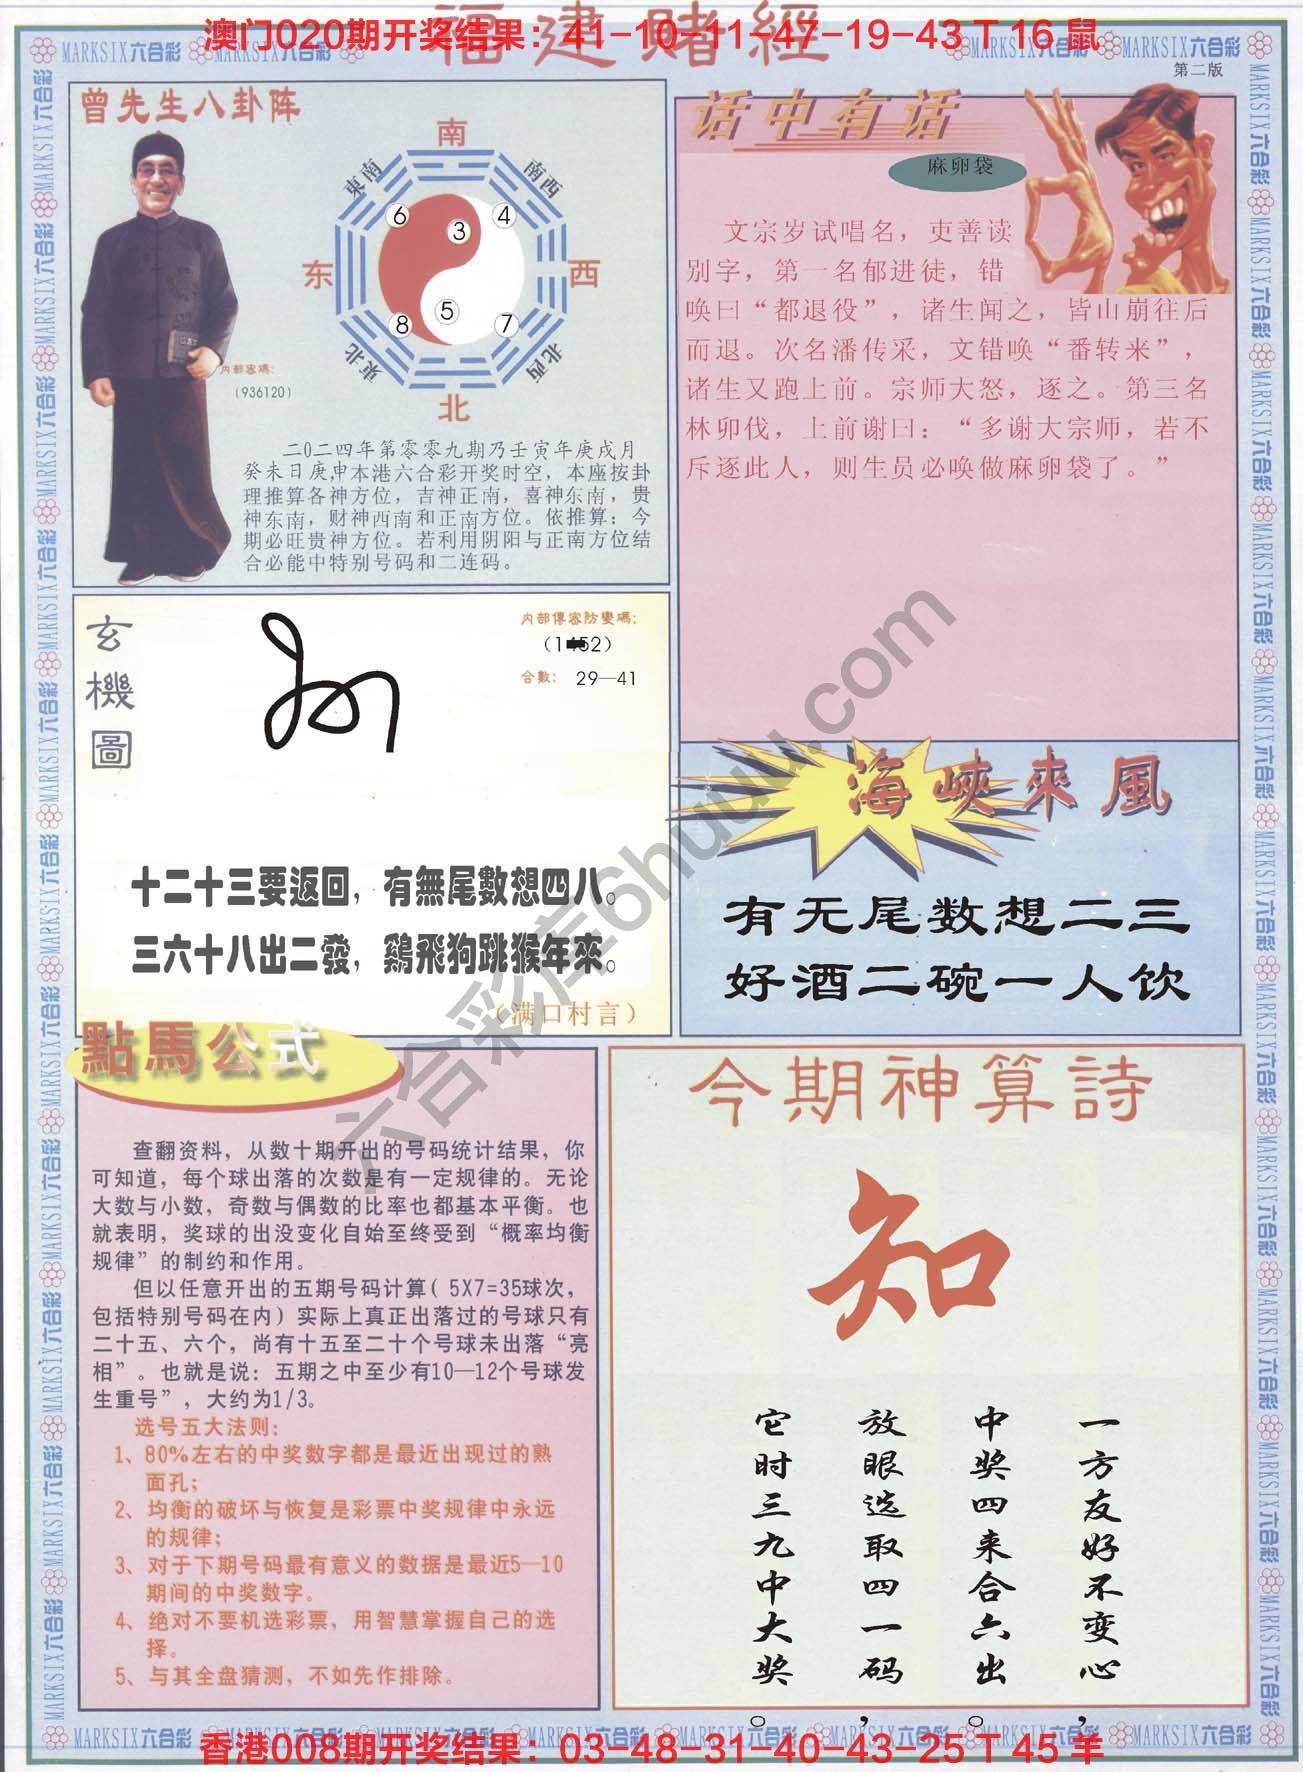 福建賭經
澳门020期开奖结果：41-10-11-47-19-43 T 16 鼠
MARKSIX六合彩
第二版
曾先生八卦阵
南
東南
南西
6
3
4
东
西
5
8
7
東北
北西
北
内部密碼：
（936120）
二0二四年第零零九期乃壬寅年庚戌月
癸未日庚申本港六合彩开奖时空，本座按卦
理推算各神方位，吉神正南，喜神东南，贵
神东南，财神西南和正南方位。依推算：今
期必旺贵神方位。若利用阴阳与正南方位结
合必能中特别号码和二连码。
话中有话
麻卵袋
文宗岁试唱名，吏善读
别字，第一名郁进徒，错
唤曰“都退役”，诸生闻之，皆山崩往后
而退。次名潘传采，文错唤“番转来”，
诸生又跑上前。宗师大怒，逐之。第三名
林卯伐，上前谢曰：“多谢大宗师，若不
斥逐此人，则生员必唤做麻卵袋了。”
玄機圖
内部傳密防變碼：
合數： 29—41
十二十三要返回，有無尾數想四八。
三六十八出二發，鷄飛狗跳猴年來。
（满口村言）
海峽來風
有无尾数想二三
好酒二碗一人饮
六合彩库6huuu.com
點馬公式
查翻资料，从数十期开出的号码统计结果，你
可知道，每个球出落的次数是有一定规律的。无论
大数与小数，奇数与偶数的比率也都基本平衡。也
就表明，奖球的出没变化自始至终受到“概率均衡
规律”的制约和作用。
但以任意开出的五期号码计算（5X7=35球次，
包括特别号码在内）实际上真正出落过的号球只有
二十五、六个，尚有十五至二十个号球未出落“亮
相”。也就是说：五期之中至少有10—12个号球发
生重号”，大约为1/3。
选号五大法则：
1、80%左右的中奖数字都是最近出现过的熟
面孔；
2、均衡的破坏与恢复是彩票中奖规律中永远
的规律；
3、对于下期号码最有意义的数据是最近5—10
期间的中奖数字。
4、绝对不要机选彩票，用智慧掌握自己的选
择。
5、与其全盘猜测，不如先作排除。
今期神算詩
知
一方友好不变心，
中奖四来合六出。
放眼选取四一码，
它时三九中大奖。
香港008期开奖结果：03-48-31-40-43-25 T 45 羊